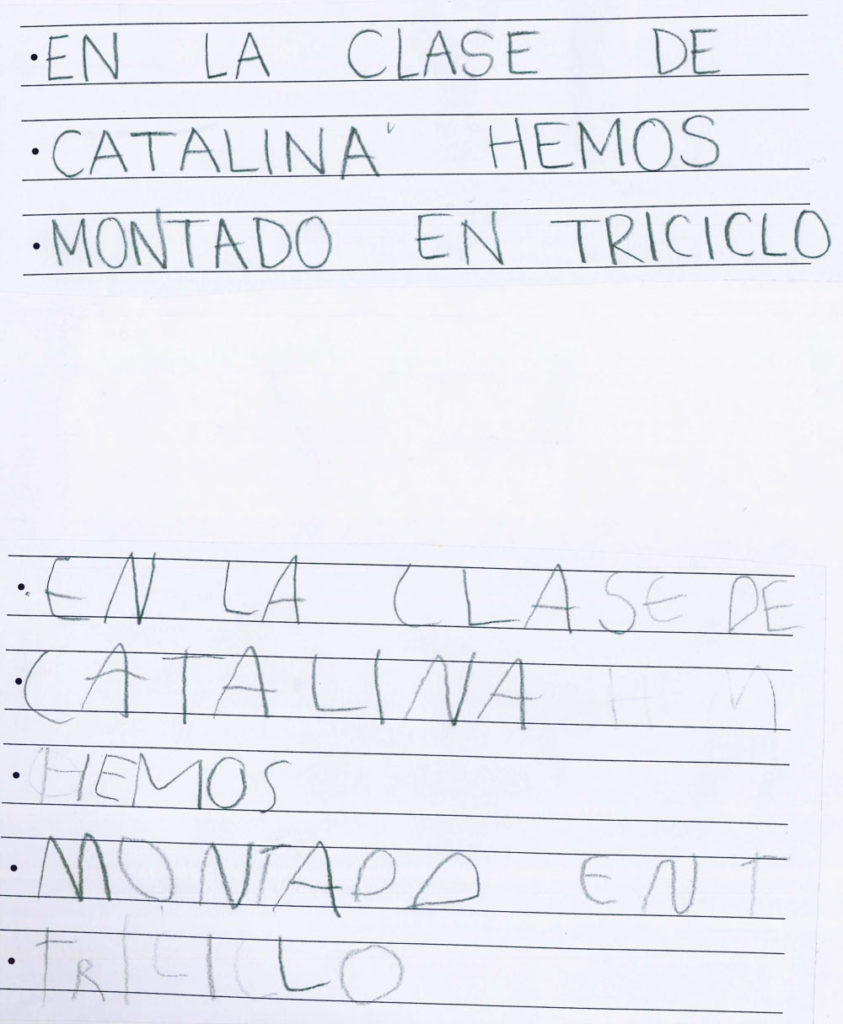 · EN LA CLASE DE
· CATALINA HEMOS
· MONTADO EN TRICICLO
· EN LA CLASE DE
· CATALINA H M
· HEMOS
· MONTADO EN T
· TRICICLO